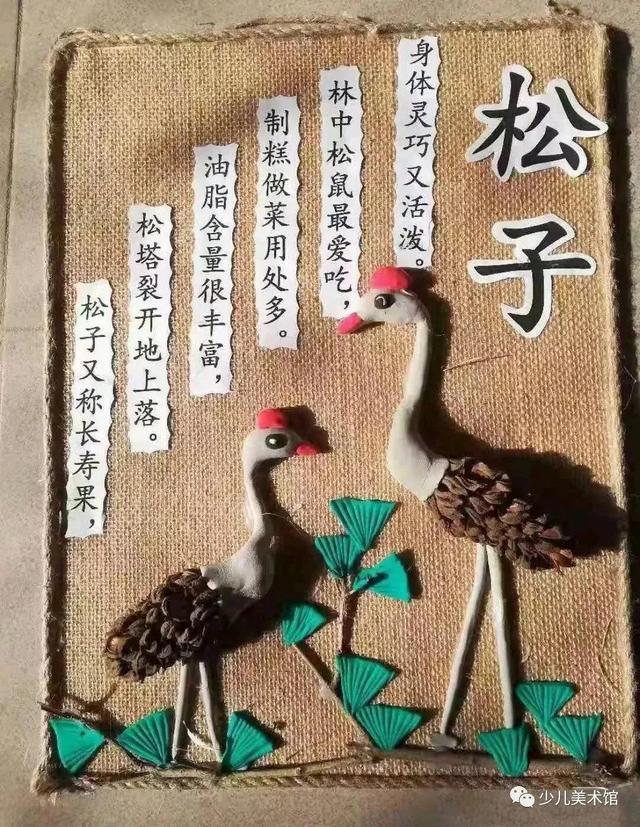 松子
松子又称长寿果，
松塔裂开地上落。
油脂含量很丰富，
制糕做菜用处多。
林中松鼠最爱吃，
身体灵巧又活泼。
少儿美术馆